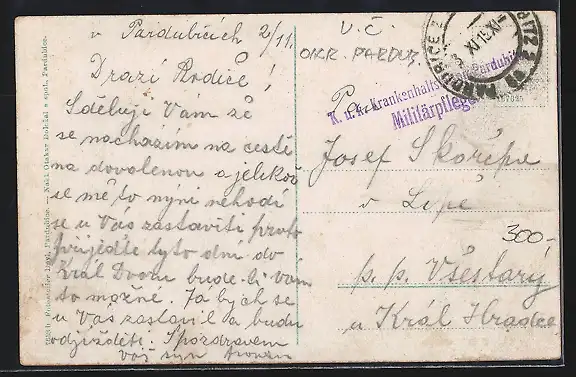 v Pardubicích 2/11.
Drazí Rodiče!
Sděluji Vám že
se nacházím na cestě
na dovolenou a jelikož
se mě to nyní nehodí
se u Vás zastaviti, proto
přijeďte tyto dni do
Král Dvora bude-li vám
to možné. Já bych se
u Vás zastavil a budu
odjížděti. S pozdravem
váš syn
V.Č.
OKR. PARDUB.
PARDUBICE
K. u. k. Krankenhaltstation Pardubitz
Militärpflege
Pan
Josef Skořepa
v Lípě
300,-
p. p. Všestary
u Král Hradce
Nakl. Otakar Doležal a spol., Pardubice.